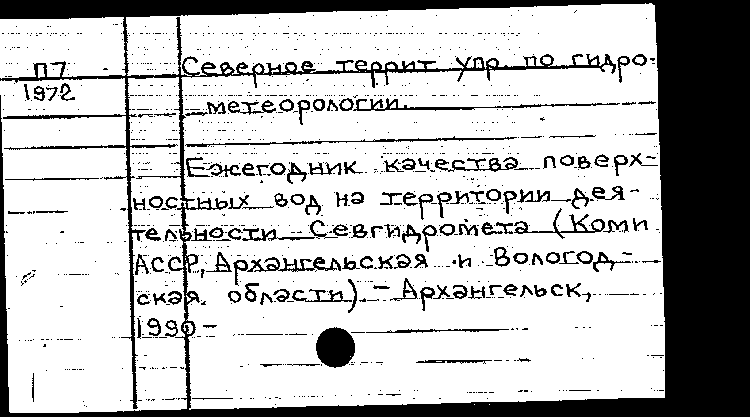 П7
1972
Северное террит упр. по гидро-
метеорологии.
Ежегодник качества поверх-
ностных вод на территории дея-
тельности Севгидромета (Коми
АССР, Архангельская и Вологод-
ская области). – Архангельск,
1990 –